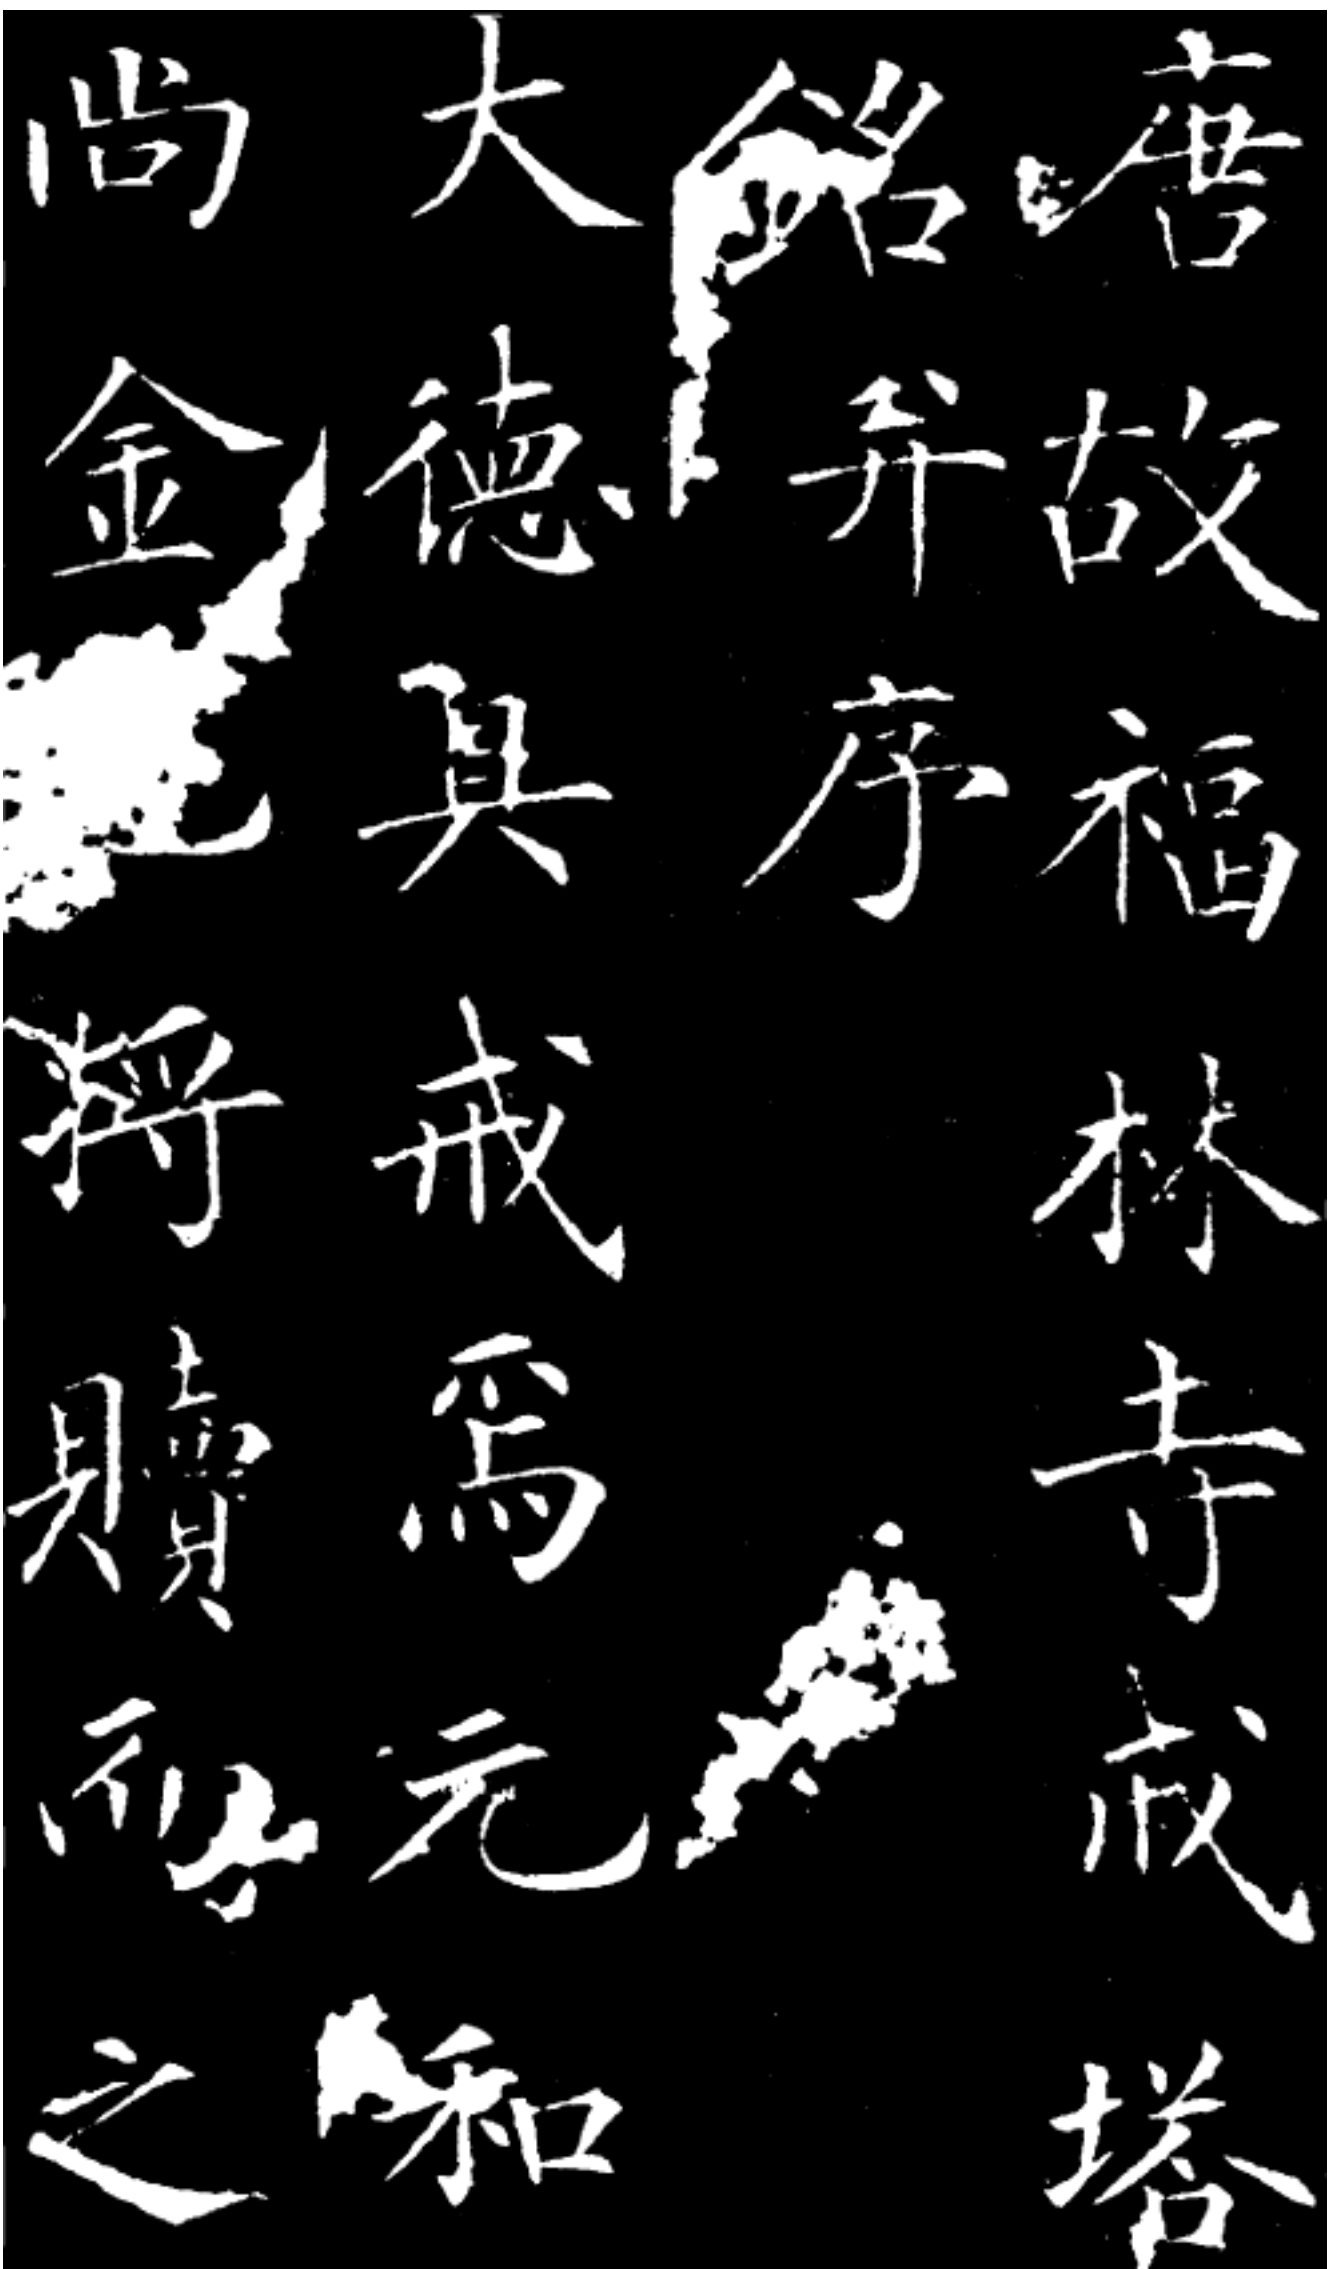 唐故福林寺戒塔
銘并序
大德具戒爲元和
尚金將贖之